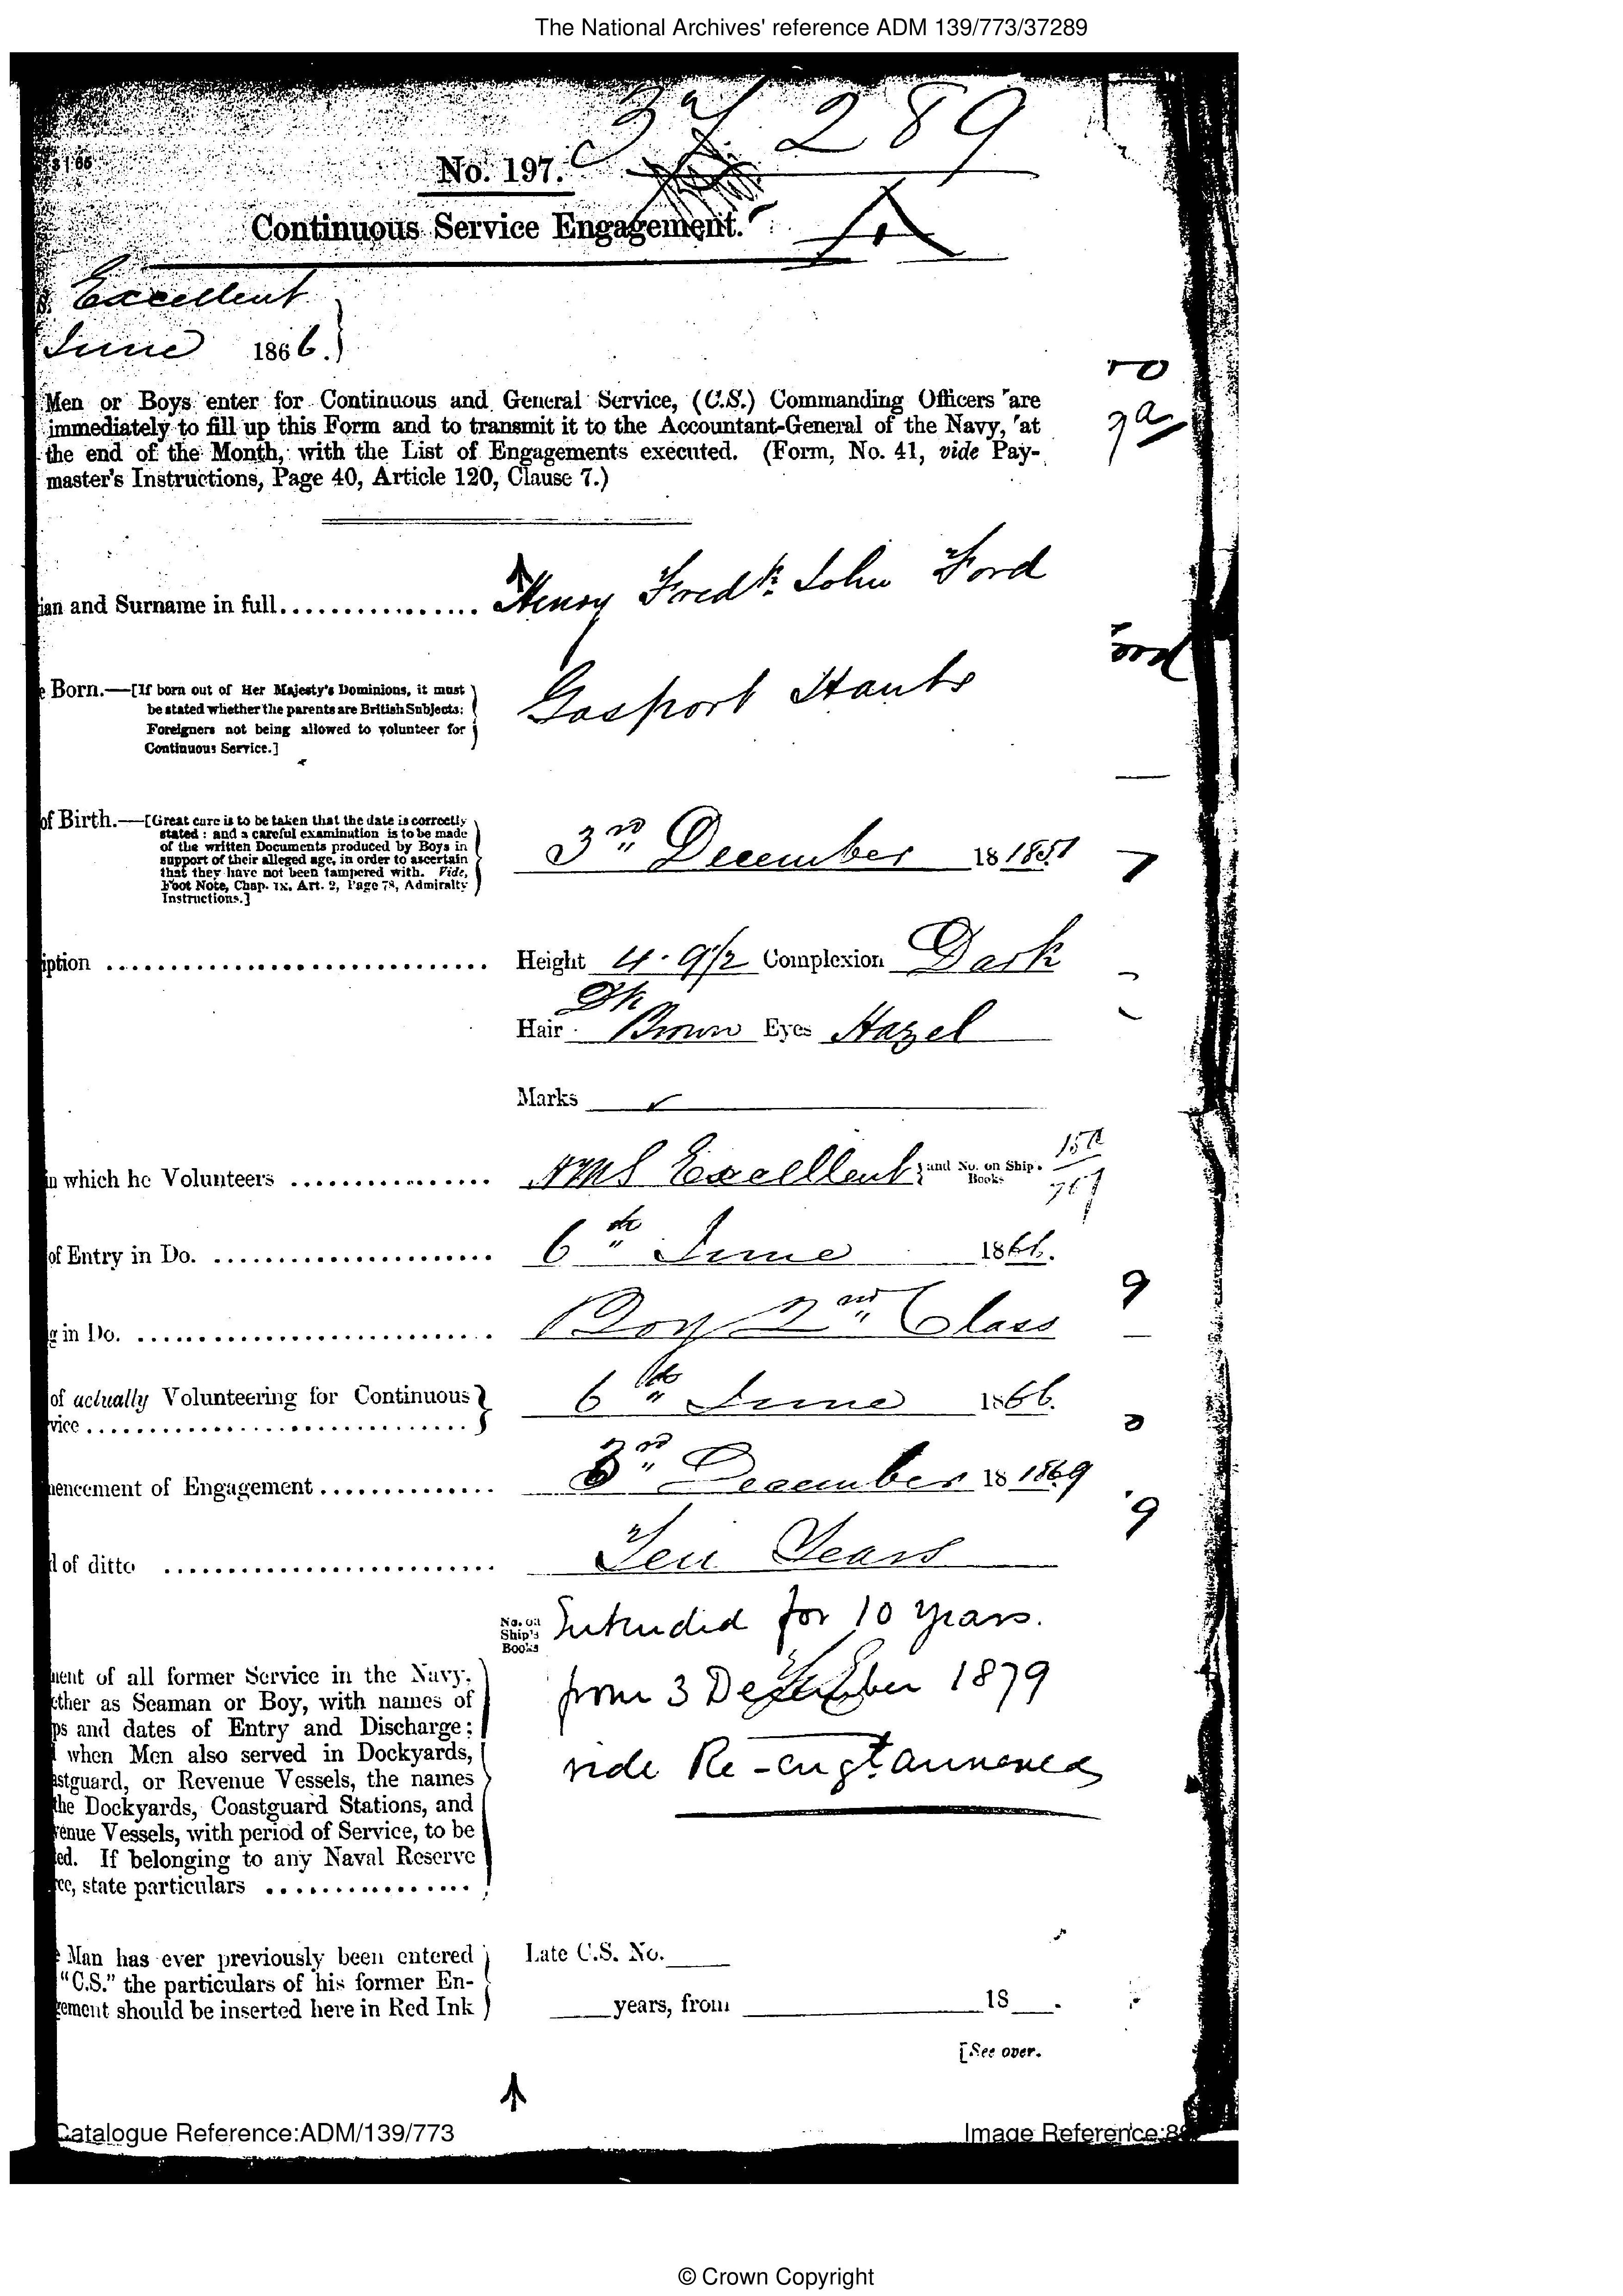 The National Archives' reference ADM 139/773/37289
37289
3166
No. 197.
Continuous Service Engagement.
A
Excellent
June 1866.
Men or Boys enter for Continuous and General Service, (C.S.) Commanding Officers are
immediately to fill up this Form and to transmit it to the Accountant-General of the Navy, at
the end of the Month, with the List of Engagements executed. (Form, No. 41, vide Pay-
master's Instructions, Page 40, Article 120, Clause 7.)
ian and Surname in full................ Henry Fredk. John Ford
ord
e Born.—[If born out of Her Majesty's Dominions, it must
be stated whether the parents are British Subjects:
Foreigners not being allowed to volunteer for
Continuous Service.]
Gosport Hants
of Birth.—[Great care is to be taken that the date is correctly
stated: and a careful examination is to be made
of the written Documents produced by Boys in
support of their alleged age, in order to ascertain
that they have not been tampered with. Vide,
Foot Note, Chap. ix. Art. 2, Page 78, Admiralty
Instructions.]
3rd December 18 1851
iption .............................. Height 4.9½ Complexion Dark
Dk
Hair Brown Eyes Hazel
Marks
in which he Volunteers ................ HMS Excellent; and No. on Ship's Books 15A
of Entry in Do. ...................... 6th June 1866.
g in Do. ............................ Boy 2nd Class
9
of actually Volunteering for Continuous
vice .............................. 6th June 1866.
mencement of Engagement.............. 3rd December 18 1869
9
d of ditto .......................... Ten Years
No. on
Ship's
Books
Intended for 10 years.
from 3 December 1879
vide Re-engt annexed
ment of all former Service in the Navy,
ether as Seaman or Boy, with names of
ps and dates of Entry and Discharge;
when Men also served in Dockyards,
astguard, or Revenue Vessels, the names
the Dockyards, Coastguard Stations, and
venue Vessels, with period of Service, to be
ed. If belonging to any Naval Reserve
rce, state particulars ................
e Man has ever previously been entered
"C.S." the particulars of his former En-
gement should be inserted here in Red Ink
Late C.S. No.
years, from 18 .
[See over.
Catalogue Reference:ADM/139/773
Image Reference:8
© Crown Copyright